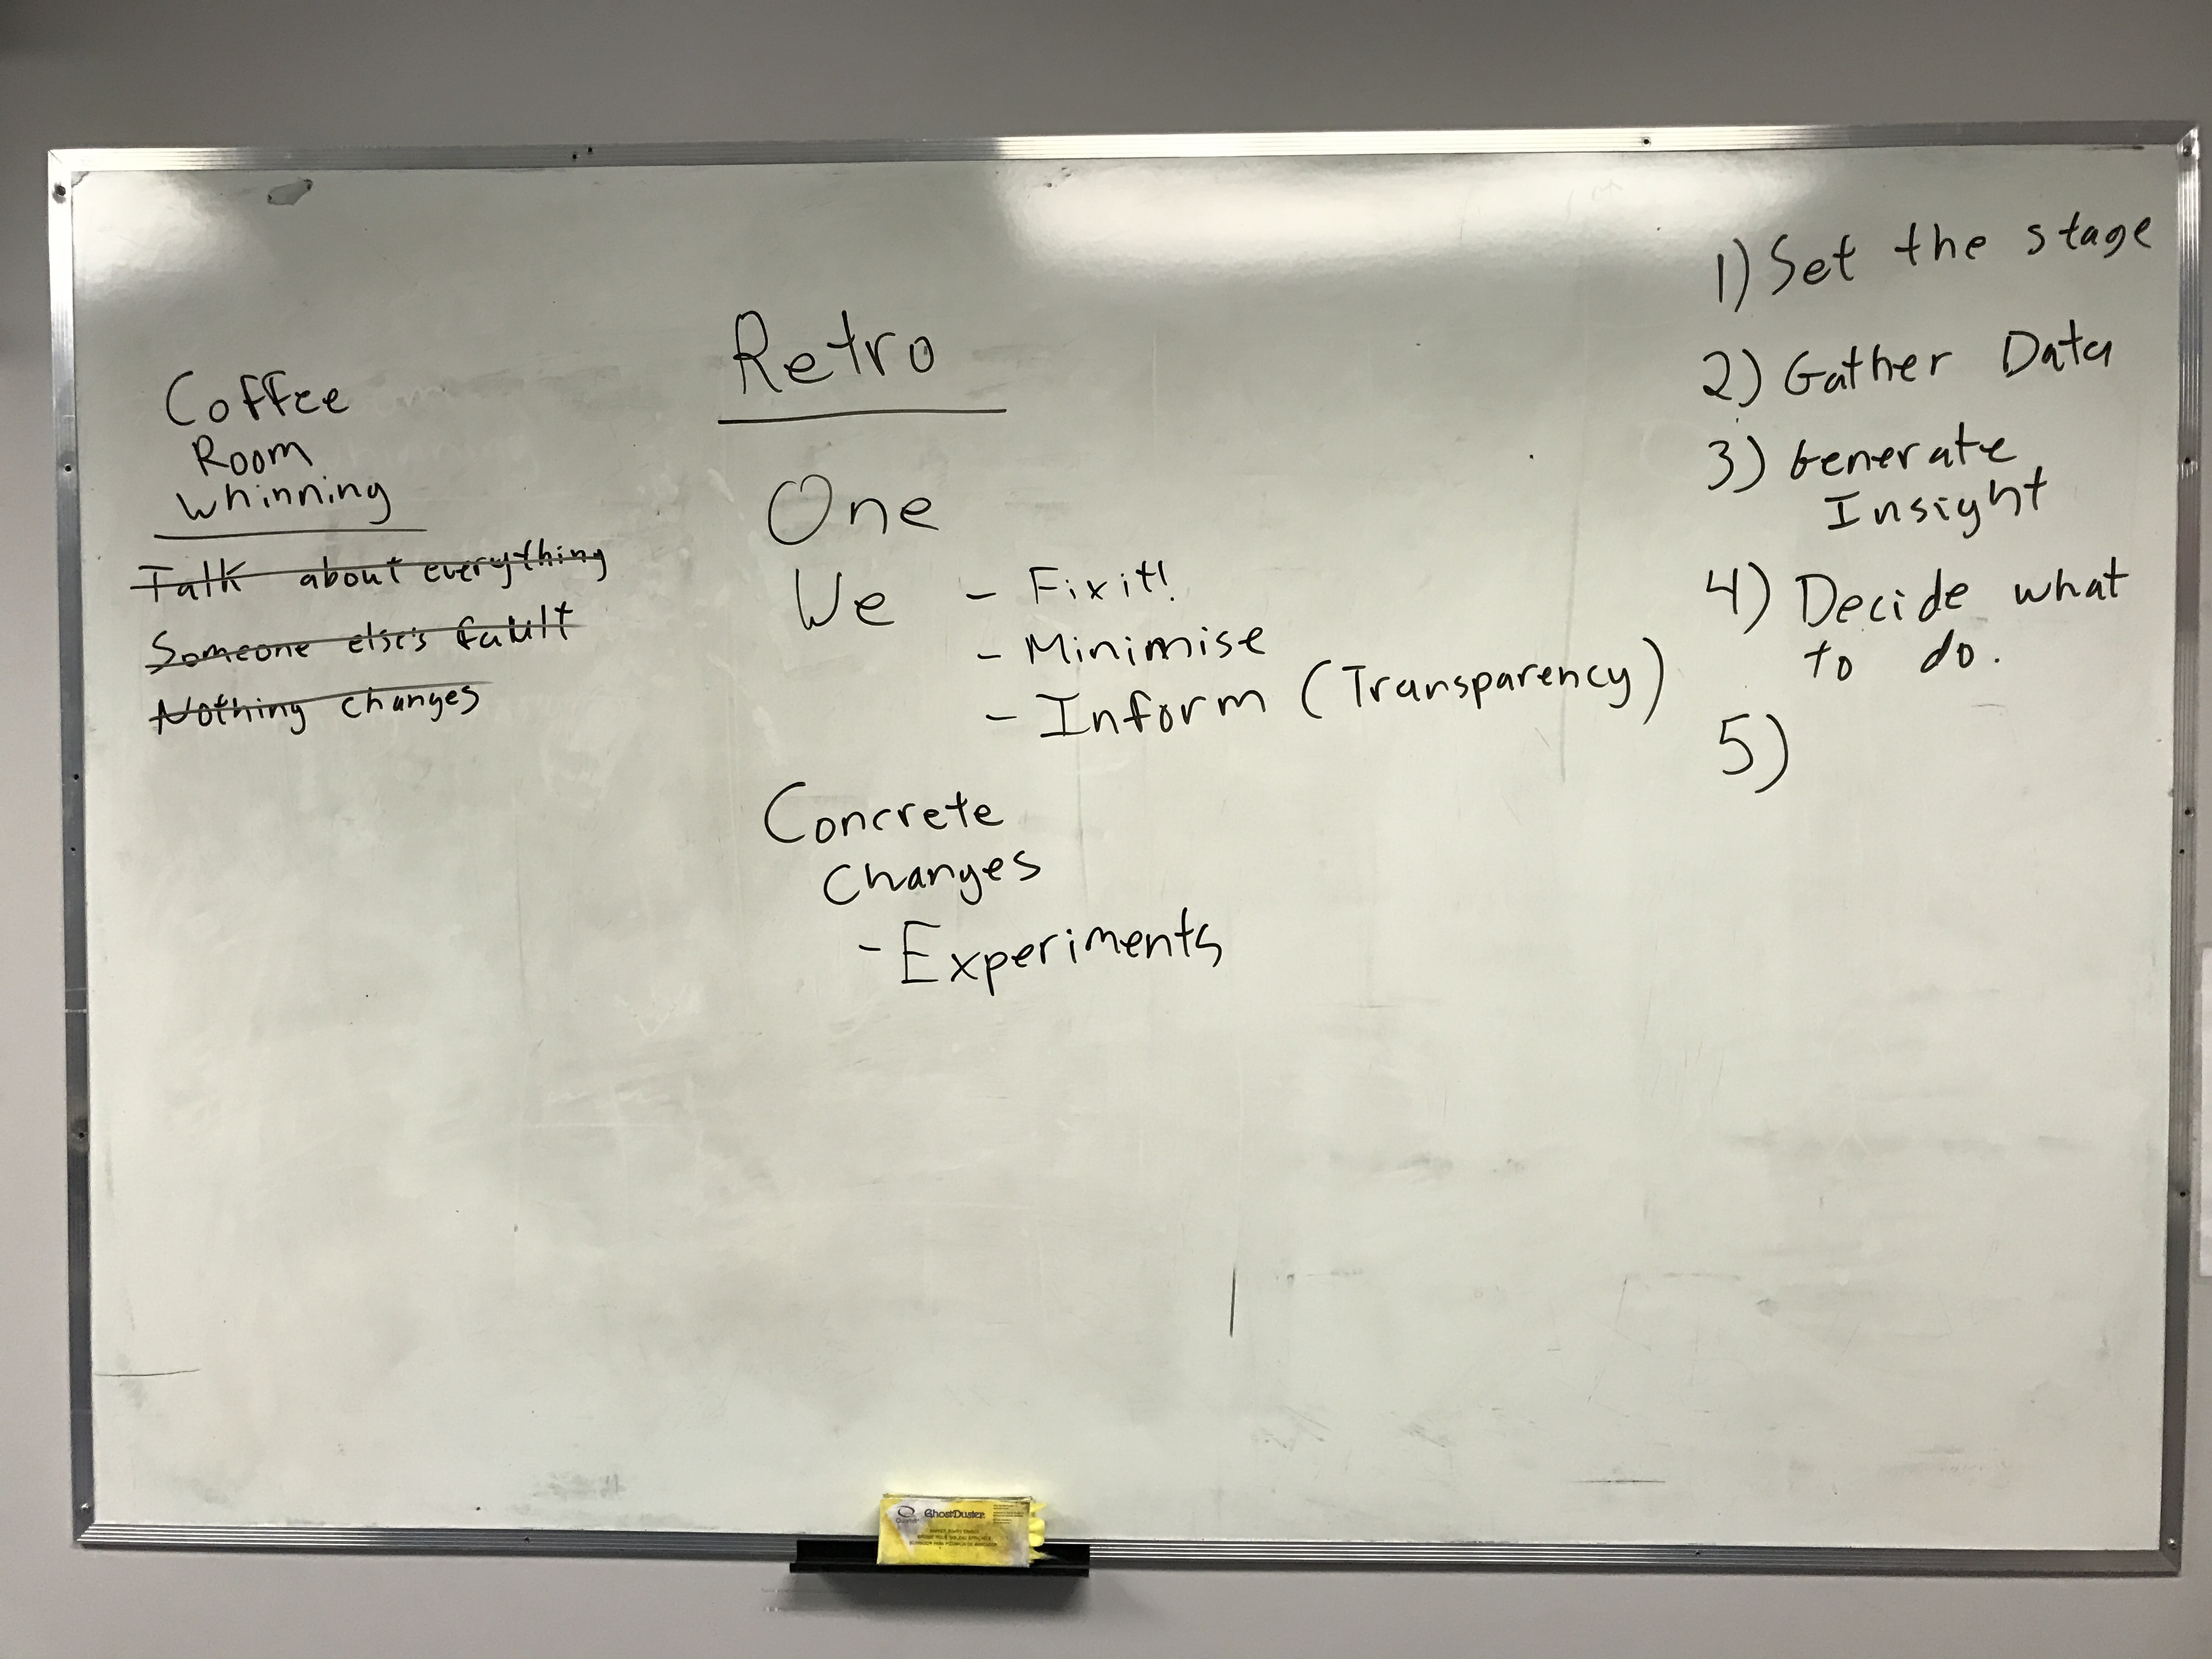 Coffee
Room
Whinning
Talk about everything
Someone else's fault
Nothing changes
Retro
One
We - Fix it!
- Minimise
- Inform (Transparency)
Concrete
Changes
- Experiments
1) Set the stage
2) Gather Data
3) Generate
Insight
4) Decide what
to do.
5)
GhostDuster